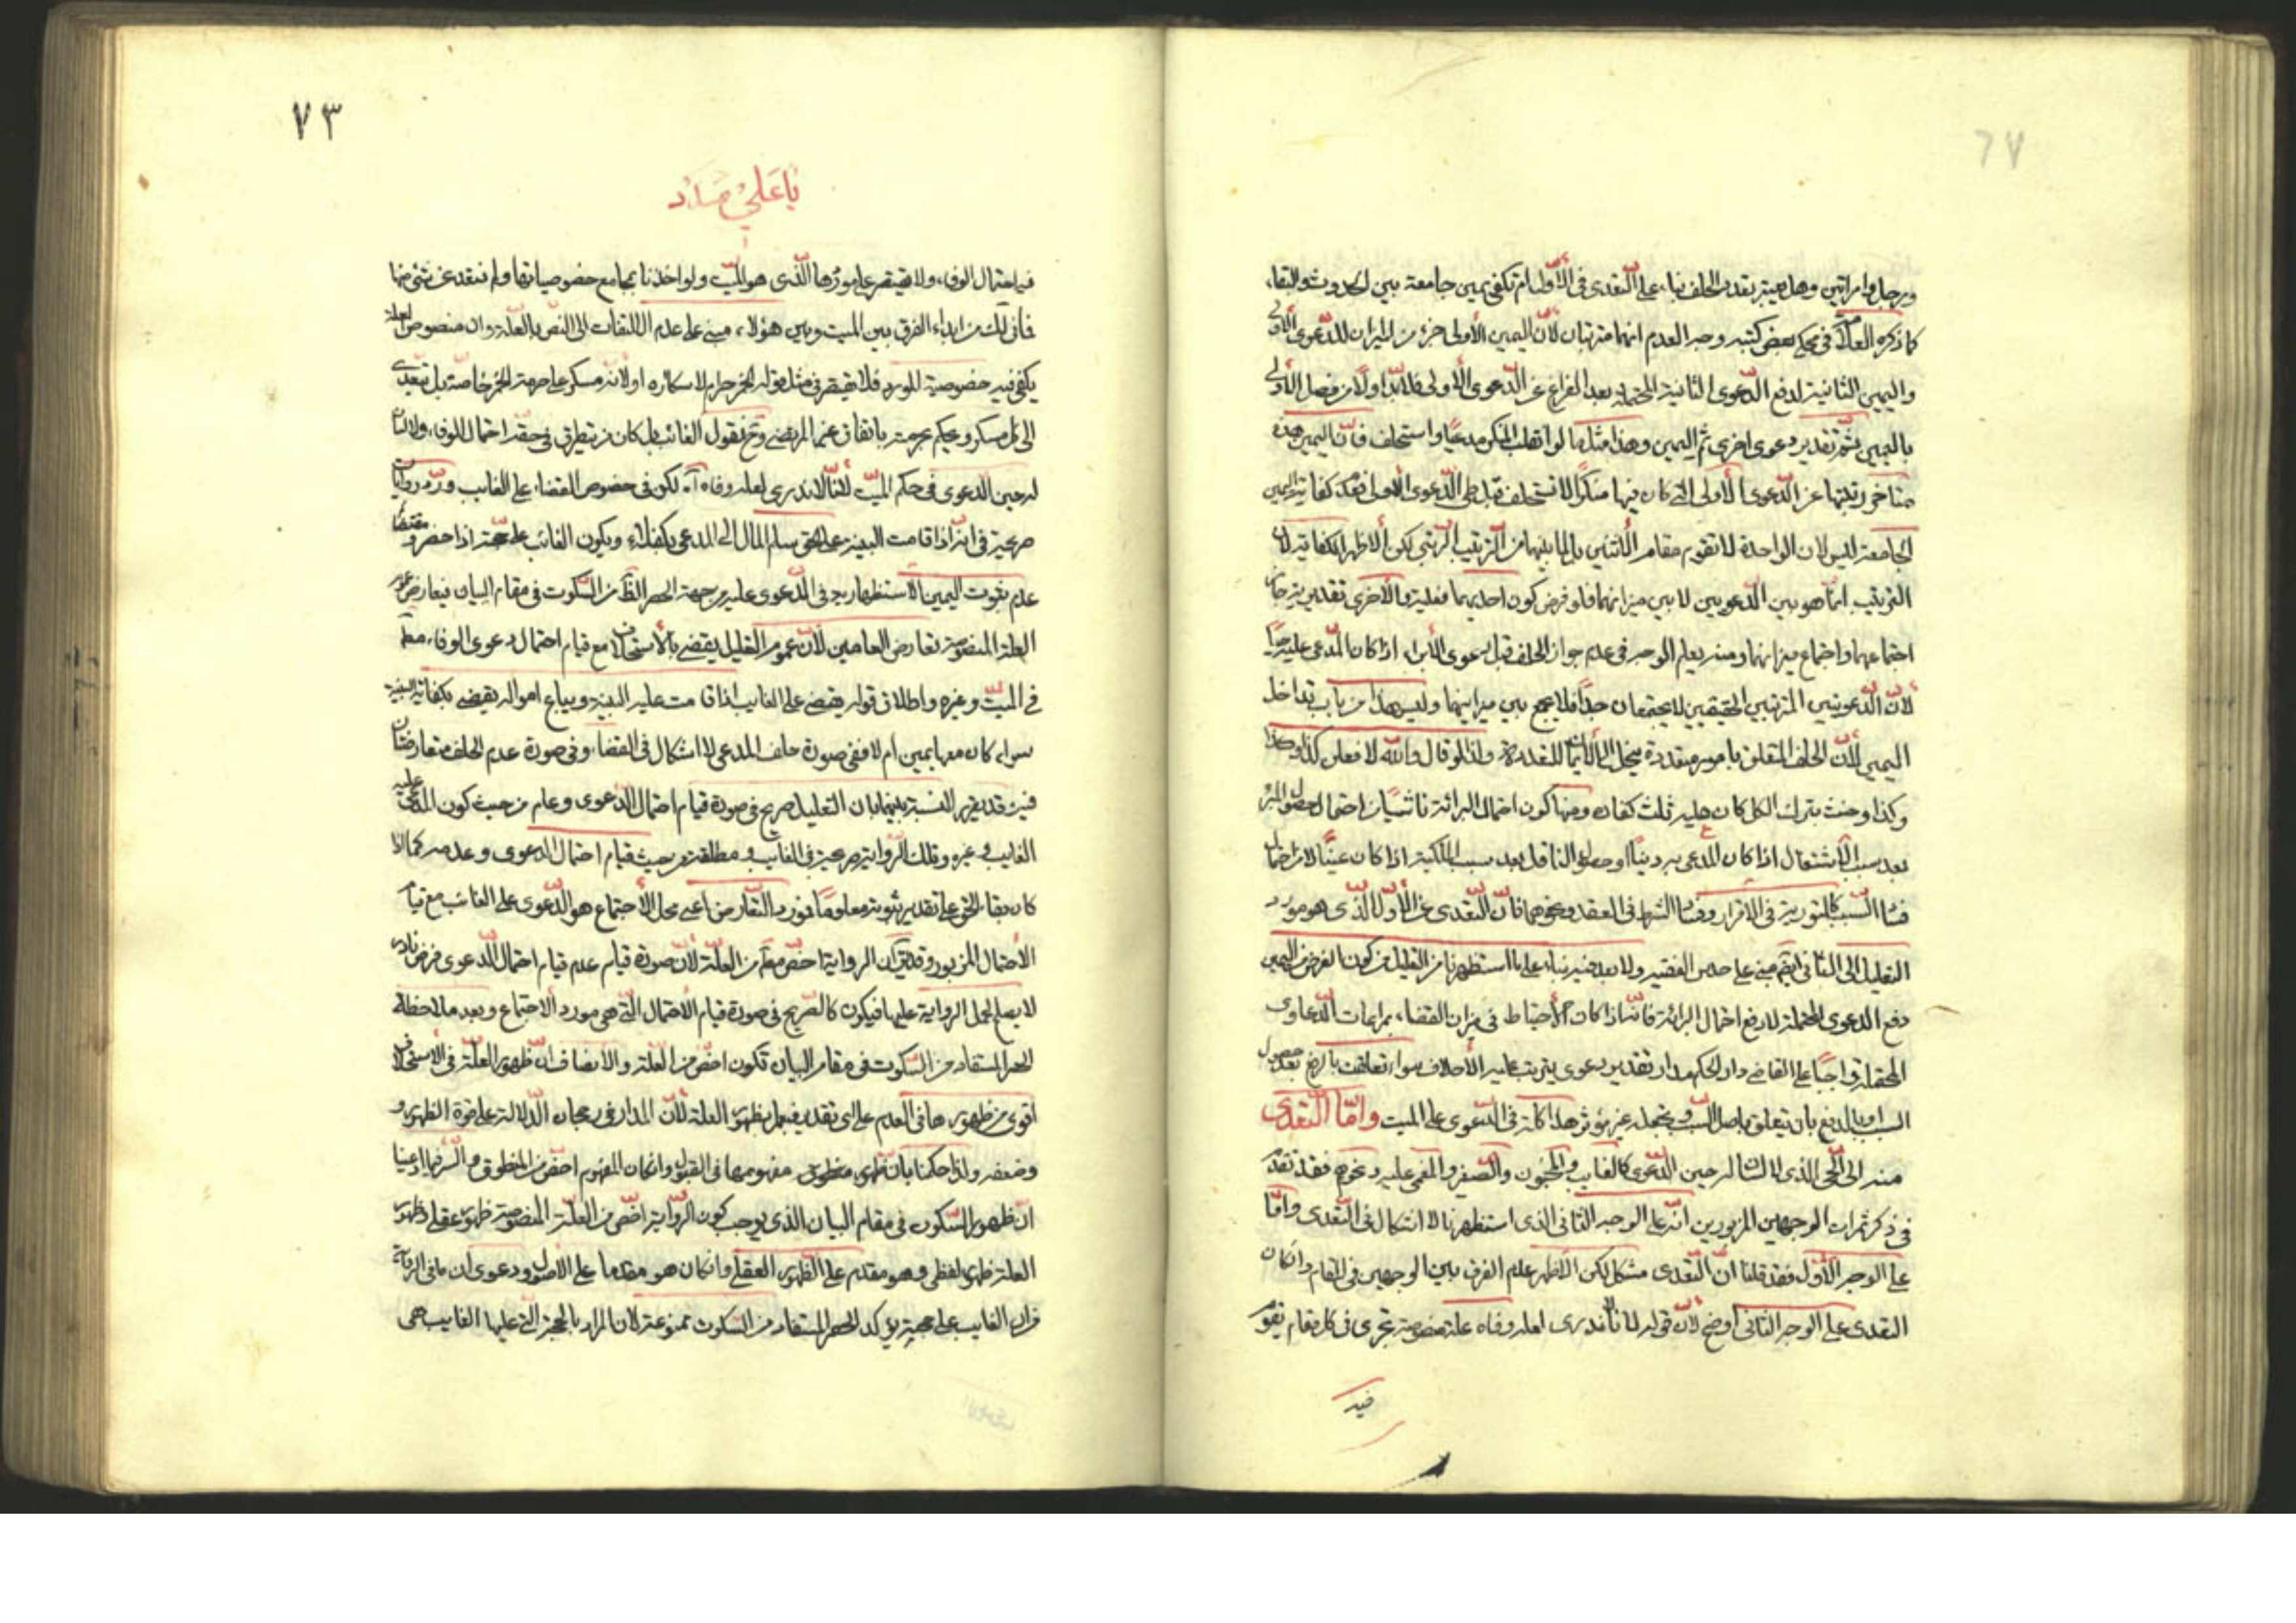 ورجل وامراتين وهل يعتبر تعدد الحلف بناء على التعدى فى الأول ام تكفى يمين جامعة بين الحدوث والبقاء
كما ذكره العلامة فى محكى بعض كتبه وجه العدم انهما مترتبان لأن اليمين الأولى جزء من الميزان للدعوى الأولى
واليمين الثانية لدفع الدعوى الثانية المحتملة بعد الفراغ عن الدعوى الأولى فلابد اولا من فصل الأولى
باليمين ثم تقدير دعوى اخرى ثم اليمين وهذا مثل ما لو انقلب المنكر مدعيا واستحلف فان اليمين هذه
متاخر رتبتها عن الدعوى الأولى التى كان فيها منكرا لا تستحلف قبل طى الدعوى الأولى فعدم كفاية اليمين
الجامعة ليس لان الواحدة لا تقوم مقام الأثنين بل لما بينهما من الترتيب الرتبى لكن الأظهر الكفاية لان
الترتيب انما هو بين الدعويين لا بين ميزانهما فلو فرض كون احديهما فعلية والأخرى تقديرية جاز
اجتماعهما واجتماع ميزانهما ومنه يعلم الوجه فى عدم جواز الحلف قبل دعوى الأبراء اذا كان المدعى عليه حيا
لأن الدعويين المترتبين الحقيقيين لا يجتمعان جدا فلا يجمع بين ميزانيهما وليس هذا من باب تداخل
اليمين لأن الحلف المتعلق بامور متعددة ينحل الى الأيمان المتعددة ولذا لو قال والله لا فعلن كذا وكذا
وكذا وحنث بترك الكل كان عليه ثلث كفاره ومنها كون احتمال البرائة ناشيا من احتمال حصول المبرء
بعد سبب الأشتغال اذا كان المدعى به دينا او حصول الناقل بعد سبب الملكية اذا كان عينا لا من احتمال
فساد السبب كالتورية فى الاقرار وفساد الشرط فى العقد ونحوهما فان التعدى عن الأول الذى هو مورد
التعليل الى الثانى ايضا مبنى على حدس الفقيه ولا بعد فيه بناء على ما استظهرنا من التعليل من كون الغرض من اليمين
دفع الدعوى المحتملة لا دفع احتمال البرائة فانه اذا كان الأحتياط فى ميزان القضاء بمراعات الدعاوى
المحتملة واجبا على القاضى دار الحكم مدار تقدير دعوى يترتب عليه الأحلاف سواء تعلقت بالرافع بعد حصول
السبب او بالدفع بان يتعلق باصل السبب بجعله غير مؤثر هذا كله فى الدعوى على الميت واما التعدى
منه الى الحى الذى لا لسان له حين الدعوى كالغايب والمجنون والصغير والمغمى عليه ونحوهم فقد تقدم
فى ذكر ثمرات الوجهين المزبورين انه على الوجه الثانى الذى استظهرنا لا اشكال فى التعدى واما
على الوجه الأول فقد قلنا ان التعدى مشكل لكن الأظهر عدم الفرق بين الوجهين فى المقام وان كان
التعدى على الوجه الثانى اوضح لأن قوله لانا لا ندرى لعله وفاه علة منصوصة تجرى فى كل مقام يقوم
فيه
٧٣
يا على مدد
فيه احتمال الوفاء ولا يقتصر على موردها الذى هو الميت ولو اخذنا بمجامع خصوصياتها ولم نتعد عن شئ منها
فما فى ... من ابداء الفرق بين الميت وبين هؤلاء مبنى على عدم الالتفات الى النص بالعلة وان منصوص العلة
يكفى فيه خصوصية المورد فلا يقتصر فى مثل قوله الخمر حرام لاسكاره او لانه مسكر على حرمة الخمر خاصة بل نتعدى
الى كل مسكر ويحكم بحرمته باتفاق ... المرتضى وح نقول الغائب بل كل من يتطرق فى حقه احتمال الوفاء ولا لسان
له حين الدعوى فى حكم الميت لانا لا ندرى لعله وفاه آه لكن فى خصوص القضاء على الغايب ورد روايات
صريحة فى انه اذا قامت البينة على الحق يسلم المال الى المدعى بكفلاء ويكون الغائب على حجته اذا حضر ومقتضاها
عدم ثبوت اليمين الاستظهارية فى الدعوى عليه من جهة الحصر الظاهر من السكوت فى مقام البيان فيعارض عموم
العلة المنصوصة تعارض العامين لأن عموم التعليل يقضى بالأستحلاف مع قيام احتمال دعوى الوفاء مطلقا
فى الميت وغيره واطلاق قوله يقضى على الغايب اذا قامت عليه البينة ويباع امواله يقضى بكفاية البينة
سواء كان معها يمين ام لا ففى صورة حلف المدعى لا اشكال فى القضاء وفى صورة عدم الحلف متعارضتان
فيه وقد يقرر النسبة بينهما بان التعليل صريح فى صورة قيام احتمال الدعوى وعام من حيث كون المدعى عليه
الغايب وغيره وتلك الرواية صريحة فى الغايب ومطلقة من حيث قيام احتمال الدعوى وعدمه كما اذا
كان بقاء الحق على تقدير ثبوته معلوما فمورد التعارض اعنى محل الأجتماع هو الدعوى على الغائب مع قيام
الأحتمال المزبور وقد يقال ان الرواية اخص مطلقا من العلة لأن صورة قيام عدم قيام احتمال الدعوى فرض نادر
لا يصلح لحمل الرواية عليها فيكون كالصريح فى صورة قيام الأحتمال التى هى مورد الاجتماع وبعد ملاحظة
الحصر المستفاد من السكوت فى مقام البيان تكون اخص من العلة والأنصاف ان ظهور العلة فى الأستحلاف
اقوى من ظهورها فى العدم على اى تقدير فيعمل بظهور العلة لأن المدار فى رجحان الدلالة على قوة الظهور و
وضعفه ولذا حكمنا بان ظهور منطوق ... مفهومها فى القبول وان كان المفهوم اخص من المنطوق والسر فيما ادعينا
ان ظهور السكوت فى مقام البيان الذى يوجب كون الرواية اخص من العلة المنصوصة ظهور عقلى وظهور
العلة ظهور لفظى وهو مقدم على الظهور العقلى وان كان هو مقدما على الأصول ودعوى ان ما فى الرواية
من ان الغايب على حجته يؤكد الحصر المستفاد من السكوت ممنوعة لان المراد بالحجة التى عليها الغايب هى